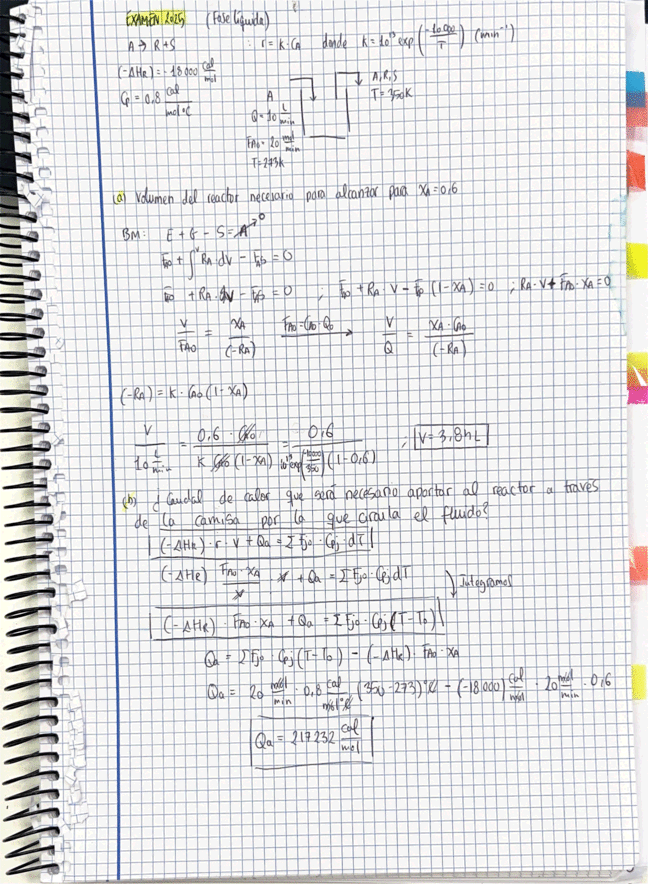 EXAMEN 2025 (Fase líquida)
A → R+S : r = k·CA donde k = 10¹³ exp(-10.000/T) (min⁻¹)
(-ΔHR) = -18000 cal/mol
Cp = 0,8 cal/mol°C
A
Q = 10 L/min
FA0 = 20 mol/min
T = 273k
A, R, S
T = 350K
(a) Volumen del reactor necesario para alcanzar para XA = 0,6
BM: E + G - S = A → 0
FA0 + ∫ᵛ RA·dV - FAS = 0
FA0 + RA·V - FAS = 0 ; FA0 + RA·V - FA0 (1-XA) = 0 ; RA·V + FA0·XA = 0
V/FA0 = XA/(-RA) FA0 = CA0·Q0 → V/Q = XA·CA0/(-RA)
(-RA) = k·CA0 (1-XA)
V/10 L/min = 0,6·CA0/k CA0 (1-XA) = 0,6/10¹³ exp(-10000/350)(1-0,6) ; V = 3,82 L
(b) ¿Caudal de calor que será necesario aportar al reactor a través
de la camisa por la que circula el fluido?
(-ΔHR)·r·V + Qa = ΣFj0·Cpj·dT
(-ΔHR) FA0·XA/V V + Qa = ΣFj0·CpjdT
Integramos
(-ΔHR)·FA0·XA + Qa = ΣFj0·Cpj(T-T0)
Qa = ΣFj0·Cpj(T-T0) - (-ΔHR)·FA0·XA
Qa = 20 mol/min · 0,8 cal/mol°C (350-273)°C - (-18000) cal/mol · 20 mol/min · 0,6
Qa = 217232 cal/mol